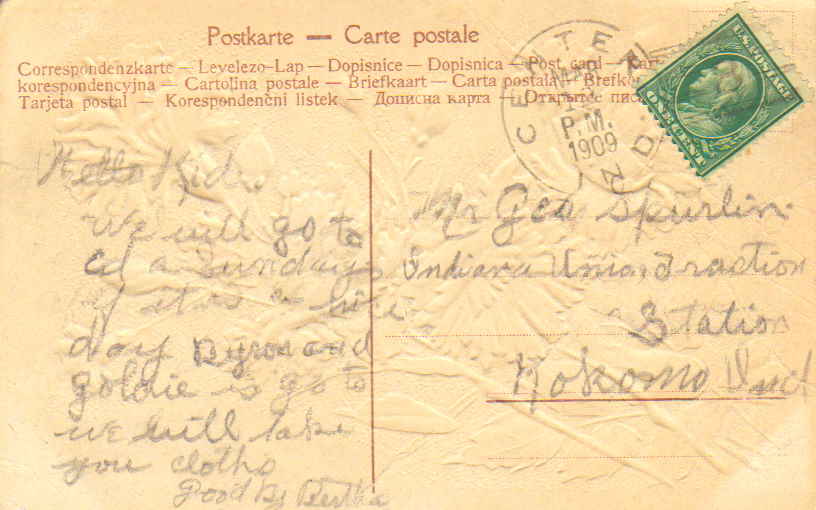 Postkarte — Carte postale
Correspondenzkarte — Levelezo-Lap — Dopisnice — Dopisnica — Post card —
korespondencyjna — Cartolina postale — Briefkaart — Carta postala — Brefkor
Tarjeta postal — Korespondenční listek — Дописна карта — Открытое пис
CENTER
MA
P.M.
1909
IND.
U.S. POSTAGE
ONE CENT
Hello Kid
We will go to
a Sunday
if it is a fine
day Byron and
goldie is go to
we will take
you cloths
Good By Bertha
Mr Geo Spurlin
Indiana Union Traction
Station
Kokomo Ind